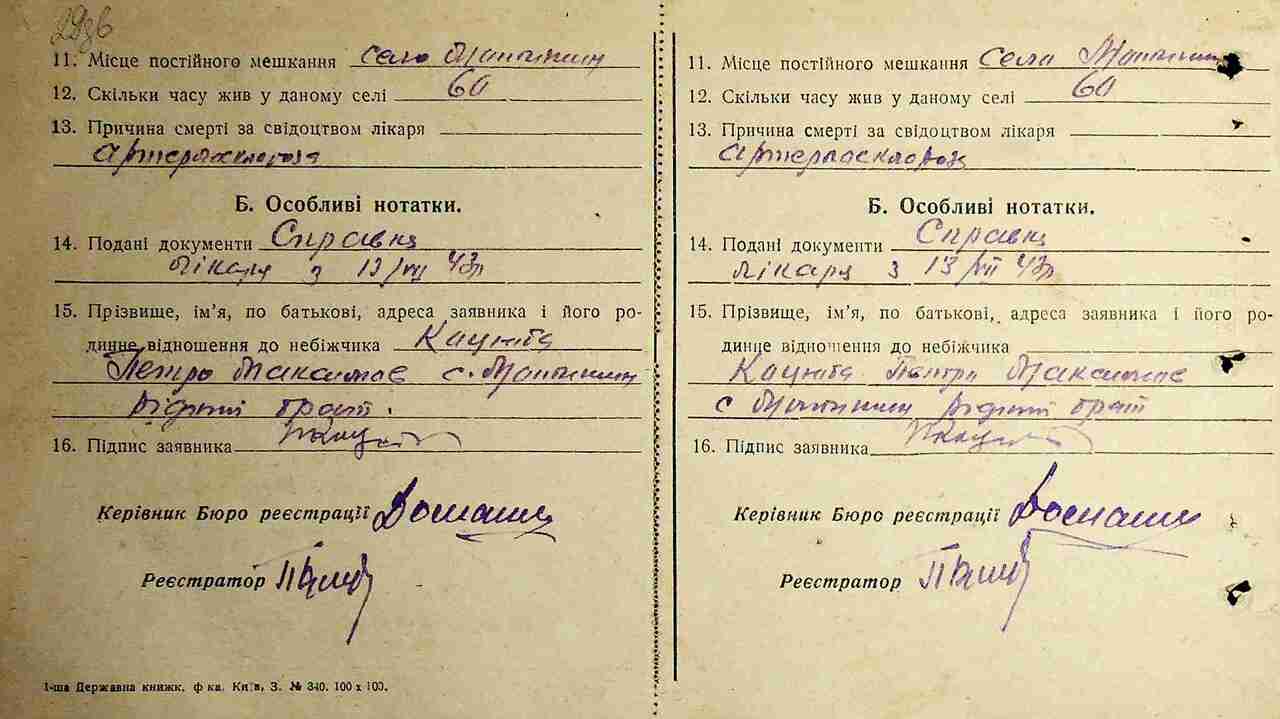 11. Місце постійного мешкання село
12. Скільки часу жив у даному селі 60
13. Причина смерті за свідоцтвом лікаря
Артериосклероза
Б. Особливі нотатки.
14. Подані документи Справка
лікаря з 13/VII 43р
15. Прізвище, ім’я, по батькові, адреса заявника і його ро-
динне відношення до небіжчика
Петро Максимов с.
рідний брат.
16. Підпис заявника
Керівник Бюро реєстрації
Реєстратор
1-ша Державна книжк. ф-ка. Київ, З. № 340. 100 х 100.
11. Місце постійного мешкання село
12. Скільки часу жив у даному селі 60
13. Причина смерті за свідоцтвом лікаря
Артериосклероза
Б. Особливі нотатки.
14. Подані документи Справка
лікаря з 13/VII 43р
15. Прізвище, ім’я, по батькові, адреса заявника і його ро-
динне відношення до небіжчика
Петро Максимов
с рідний брат
16. Підпис заявника
Керівник Бюро реєстрації
Реєстратор